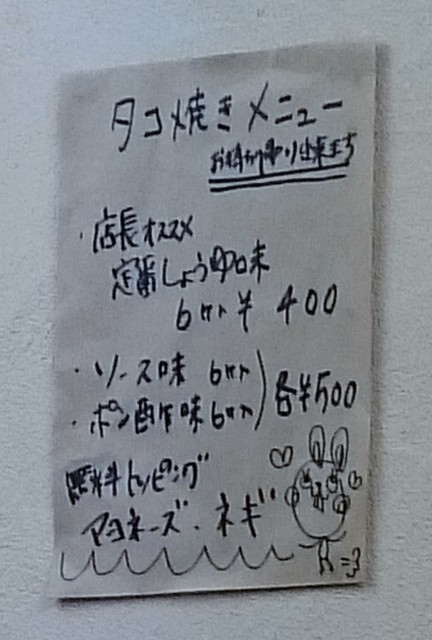 タコ焼きメニュー
お持ち帰り出来ます
・店長オススメ
定番しょうゆ味
6ケ ¥400
・ソース味 6ケ
・ポン酢味 6ケ
各¥500
無料トッピング
マヨネーズ・ネギ